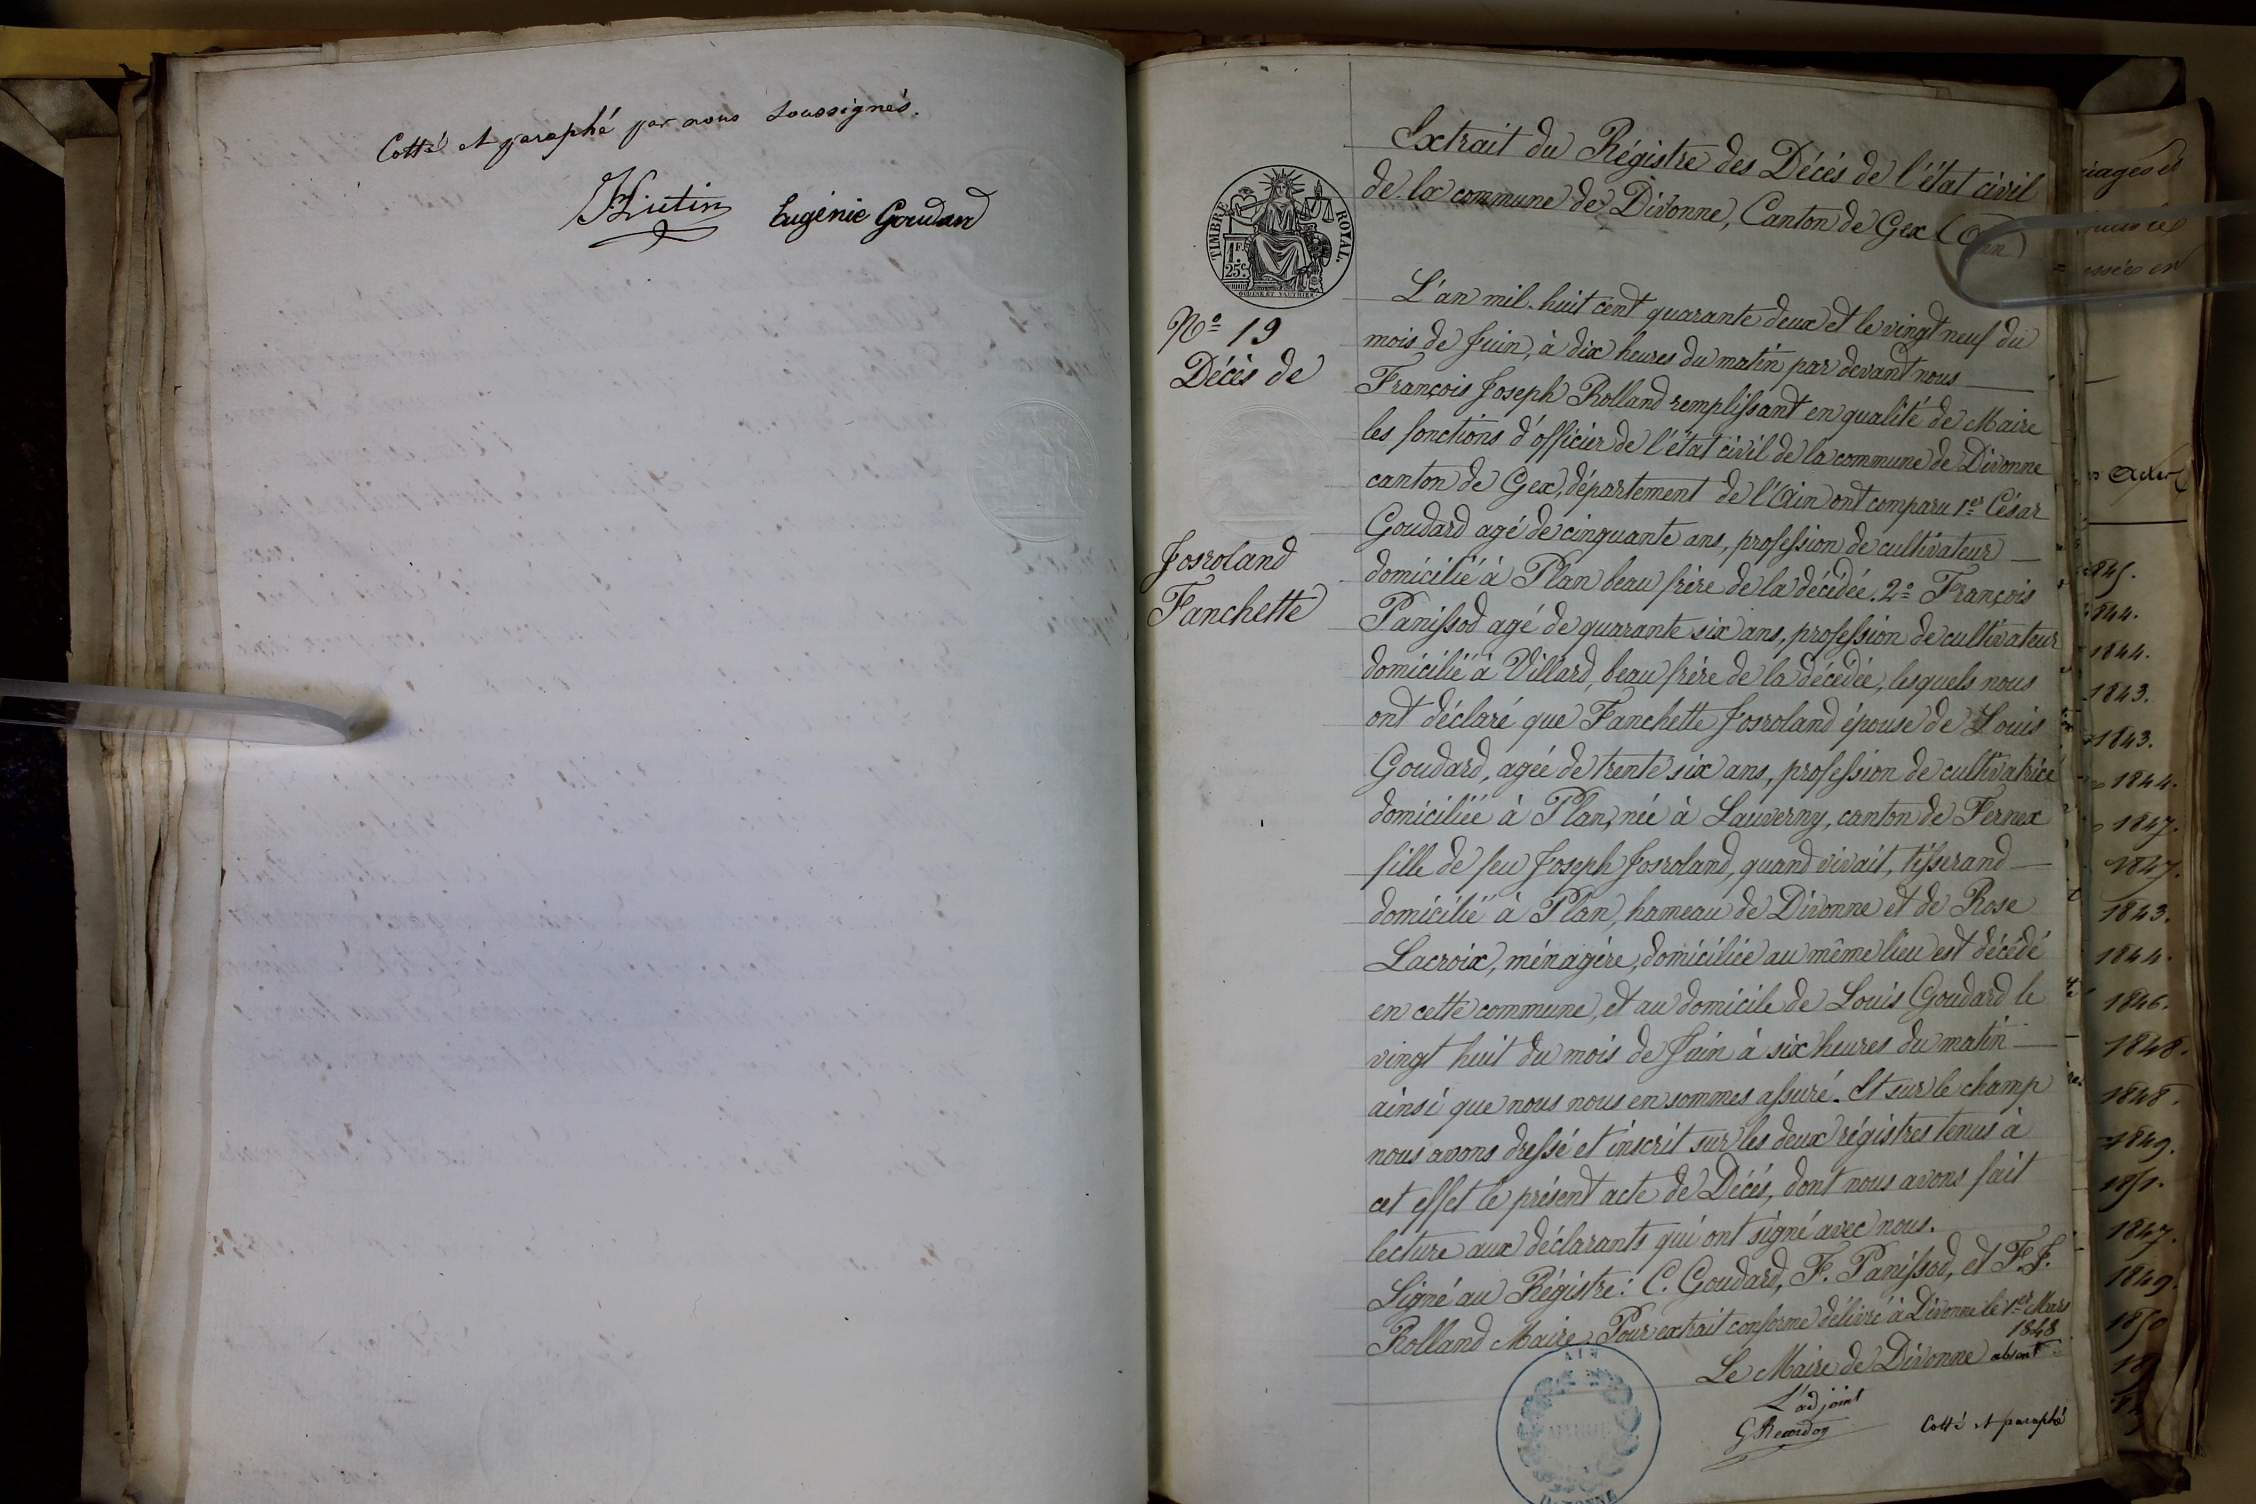 Cotté et paraphé par nous soussignés.
Hutin Eugénie Goudard
Extrait du Régistre des Décés de l'état civil
de la commune de Divonne, Canton de Gex (Ain)
TIMBRE ROYAL.
1.F.
25c.
N° 19
Décès de
Josroland
Fanchette
L'an mil-huit cent quarante deux et le vingt neuf du
mois de Juin, à dix heures du matin par devant nous
François Joseph Rolland remplissant en qualité de Maire
les fonctions d'officier de l'état civil de la commune de Divonne
canton de Gex, département de l'Ain ont comparu 1er César
Goudard agé de cinquante ans, profession de cultivateur
domicilié à Plan beau frère de la décédée. 2° François
Panissod agé de quarante six ans, profession de cultivateur
domicilié à Villard, beau frère de la décédée, lesquels nous
ont déclaré que Fanchette Josroland épouse de Louis
Goudard, agée de trente six ans, profession de cultivatrice
domiciliée à Plan, née à Sauverny, canton de Fernex
fille de feu Joseph Josroland, quand vivait, tisserand
domicilié à Plan, hameau de Divonne et de Rose
Lacroix, ménagère, domiciliée au même lieu est décédé
en cette commune, et au domicile de Louis Goudard le
vingt huit du mois de Juin à six heures du matin
ainsi que nous nous en sommes assuré. Et sur le champ
nous avons dressé et inscrit sur les deux régistres tenus à
cet effet le présent acte de Décés, dont nous avons fait
lecture aux déclarants qui ont signé avec nous.
Signé au Régistre: C. Goudard, F. Panissod, et F. J.
Rolland Maire. Pour extrait conforme délivré à Divonne le 1er Mars
1848
Le Maire de Divonne absent
L'adjoint
Cotté et paraphé
AIN
MAIRIE
DIVONNE
Actes
1845.
1844.
1844.
1843.
1843.
1844.
1847.
1847.
1843.
1844.
1846.
1848.
1848.
1849.
1851.
1847.
1849.
1850